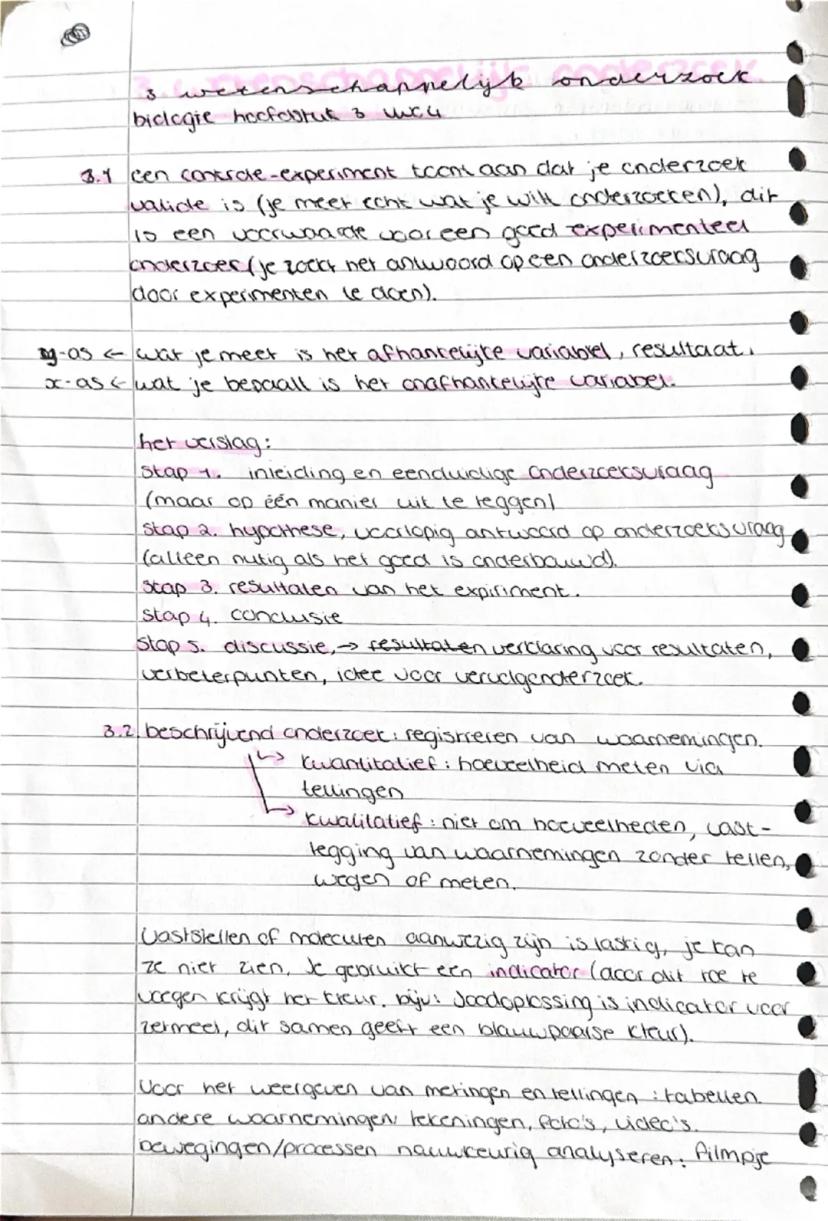 3 wetenschappelijk onderzoek
biologie hoofdstuk 3 vwo4
3.1 een controle-experiment toont aan dat je onderzoek
valide is (je meet echt wat je wilt onderzoeken), dit
is een voorwaarde voor een goed experimenteel
onderzoek (je zoekt het antwoord op een onderzoeksvraag
door experimenten te doen).
y-as ← wat je meet is het afhankelijke variabel, resultaat.
x-as ← wat je bepaalt is het onafhankelijke variabel.
het verslag:
Stap 1. inleiding en eenduidige onderzoeksvraag
(maar op één manier uit te leggen)
Stap 2. hypothese, voorlopig antwoord op onderzoeksvraag
(alleen nuttig als het goed is onderbouwd).
Stap 3. resultaten van het expiriment.
Stap 4. conclusie
Stap 5. discussie, → resultaten verklaring voor resultaten,
verbeterpunten, idee voor vervolgonderzoek.
3.2 beschrijvend onderzoek: registreren van waarnemingen.
↳ Kwantitatief: hoeveelheid meten via
tellingen
↳ Kwalitatief: niet om hoeveelheden, vast-
legging van waarnemingen zonder tellen,
wegen of meten.
Vaststellen of moleculen aanwezig zijn is lastig, je kan
ze niet zien. Je gebruikt een indicator (door dit toe te
voegen krijgt het kleur. bijv: Joodoplossing is indicator voor
zetmeel, dit samen geeft een blauwpaarse kleur).
Voor het weergeven van metingen en tellingen: tabellen
andere waarnemingen tekeningen, foto's, video's.
bewegingen/processen nauwkeurig analyseren: filmpje